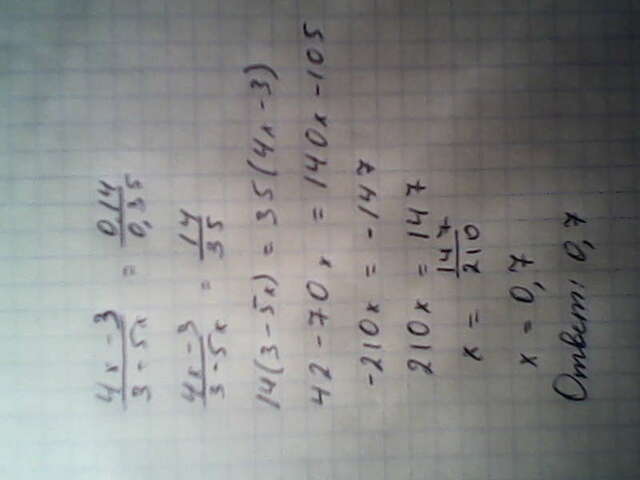 (4x-3)/(3-5x) = 0,14/0,35
(4x-3)/(3-5x) = 14/35
14(3-5x) = 35(4x-3)
42-70x = 140x-105
-210x = -147
210x = 147
x = 147/210
x = 0,7
Ответ: 0,7